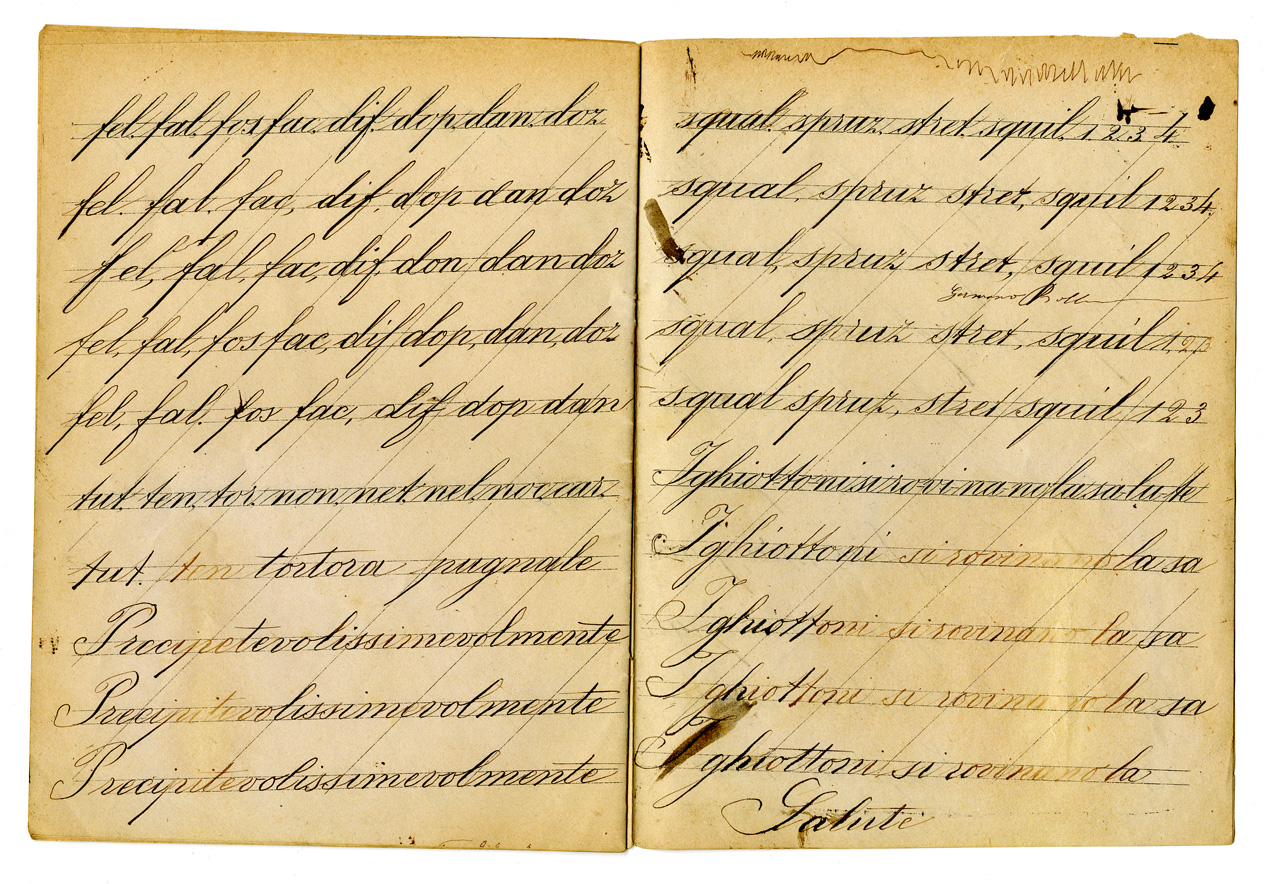 fel. fal. fos. fac. dif. dop. dan. doz
fel. fal. fac, dif. dop dan doz
fel, fal, fac, dif, don dan doz
fel, fal, fos fac, dif, dop, dan, doz
fel, fal. fos fac, dif dop dan
tut. ten. tor. non. net. nel. noc. car.
tut. ten tortora pugnale
Precipetevolissimevolmente
Precipitevolissimevolmente
Precipitevolissimevolmente
squal. spruz. stret. squil. 1 2 3 4.
squal, spruz stret, squil 1 2 3 4.
squal, spruz stret, squil 1 2 3 4
Germano
squal, spruz stret, squil 1, 2 3
squal spruz, stret squil 1 2 3
I ghiottoni si rovinano la salute
I ghiottoni si rovinano la sa
I ghiottoni si rovinano la sa
I ghiottoni si rovinano la sa
I ghiottoni si rovinano la
Salute